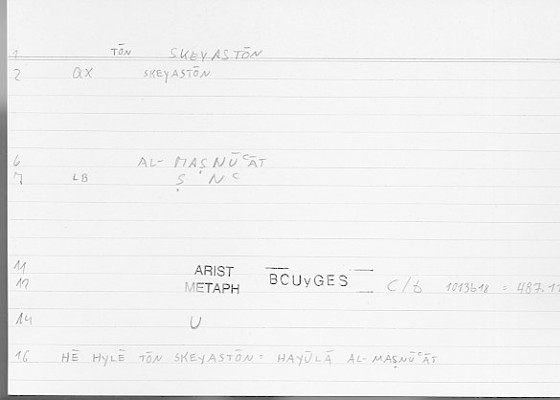 1 TŌN SKEYASTŌN
2 QX SKEYASTŌN
6 AL- MAṢNŪʿĀT
7 LB Ṣ N ʿ
11 ARIST
12 METAPH BCUyGES C/b 1013b18 = 487.17
14 U
16 HĒ HYLĒ TŌN SKEYASTŌN = HAYŪLĀ AL-MAṢNŪʿĀT